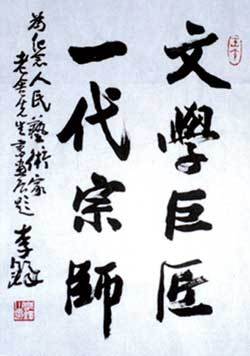 文學巨匠
一代宗師
为纪念人民藝術家
老舍先生書画展題
李鐸